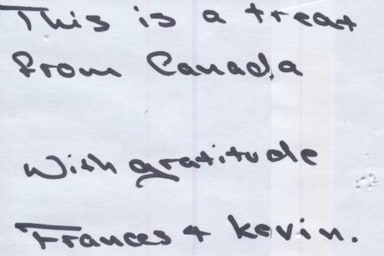 This is a treat
from Canada
With gratitude
Frances + Kevin.